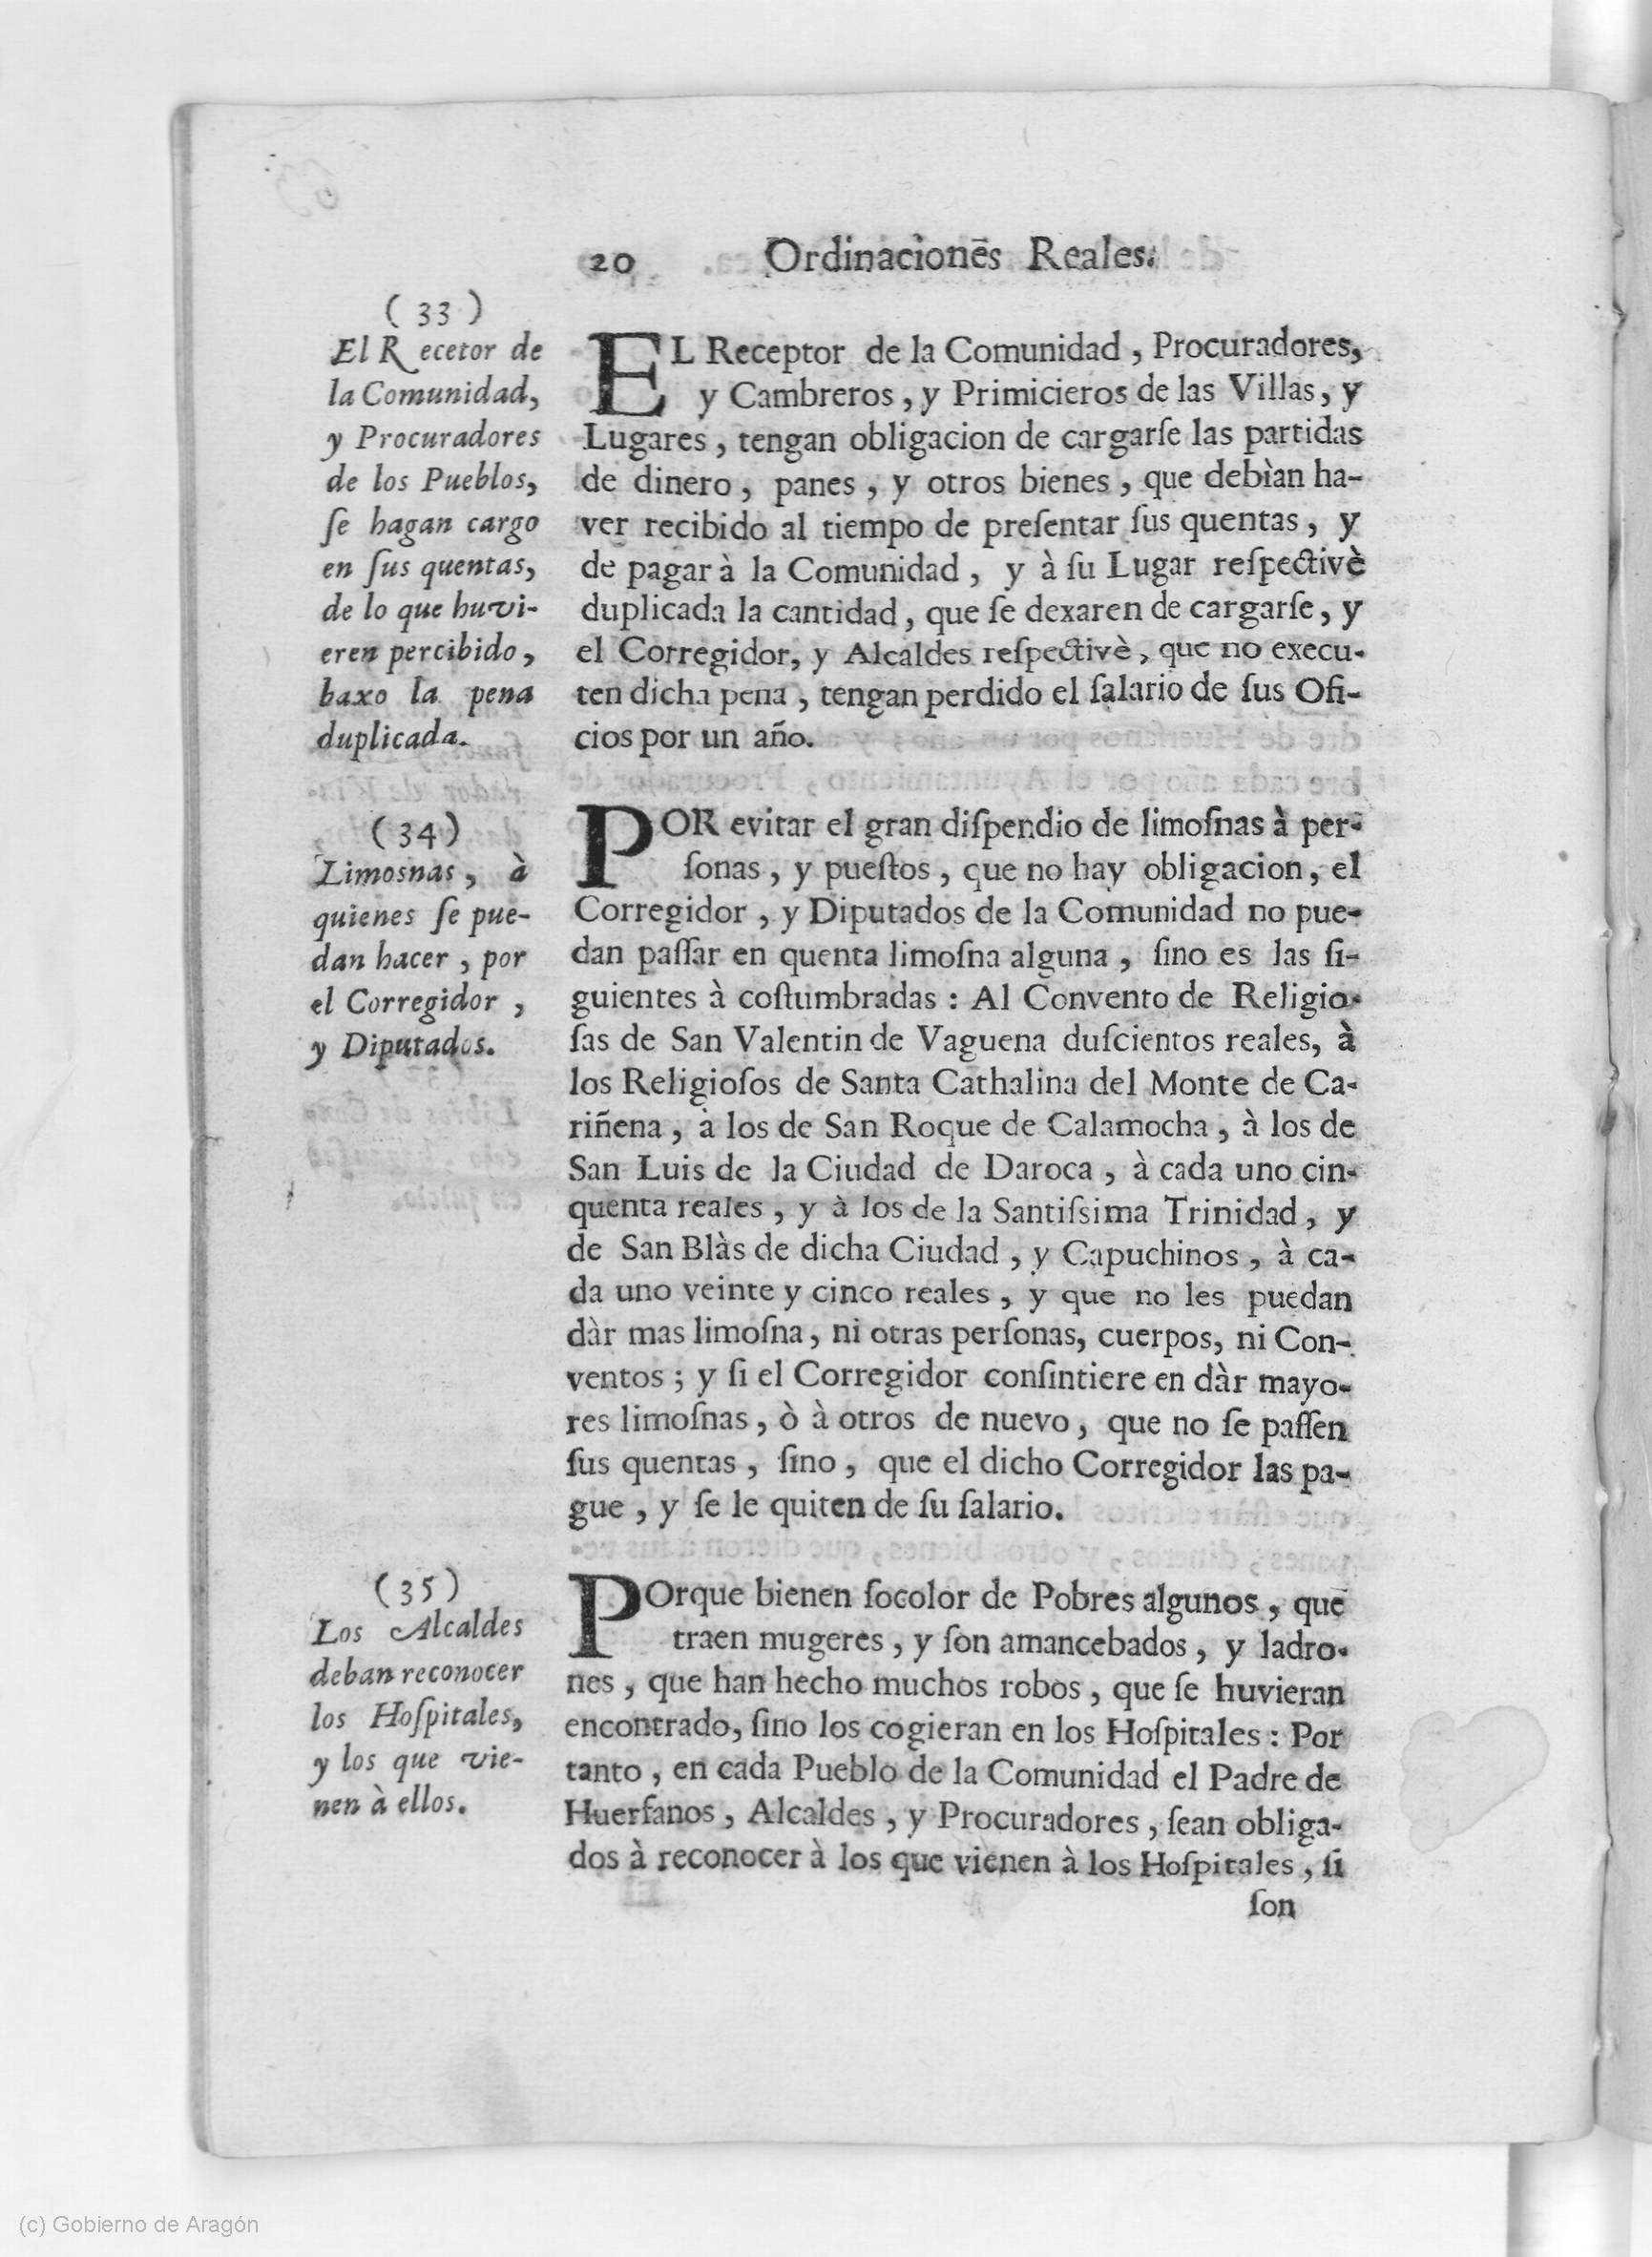 20 Ordinacionēs Reales.
(33)
El Recetor de
la Comunidad,
y Procuradores
de los Pueblos,
ſe hagan cargo
en ſus quentas,
de lo que huvi-
eren percibido,
baxo la pena
duplicada.
EL Receptor de la Comunidad, Procuradores,
y Cambreros, y Primicieros de las Villas, y
Lugares, tengan obligacion de cargarſe las partidas
de dinero, panes, y otros bienes, que debìan ha-
ver recibido al tiempo de preſentar ſus quentas, y
de pagar à la Comunidad, y à ſu Lugar reſpectivè
duplicada la cantidad, que ſe dexaren de cargarſe, y
el Corregidor, y Alcaldes reſpectivè, que no execu-
ten dicha pena, tengan perdido el ſalario de ſus Ofi-
cios por un año.
(34)
Limosnas, à
quienes ſe pue-
dan hacer, por
el Corregidor,
y Diputados.
POR evitar el gran diſpendio de limoſnas à per-
ſonas, y pueſtos, que no hay obligacion, el
Corregidor, y Diputados de la Comunidad no pue-
dan paſſar en quenta limoſna alguna, ſino es las ſi-
guientes à coſtumbradas: Al Convento de Religio-
ſas de San Valentin de Vaguena duſcientos reales, à
los Religioſos de Santa Cathalina del Monte de Ca-
riñena, à los de San Roque de Calamocha, à los de
San Luis de la Ciudad de Daroca, à cada uno cin-
quenta reales, y à los de la Santiſsima Trinidad, y
de San Blàs de dicha Ciudad, y Capuchinos, à ca-
da uno veinte y cinco reales, y que no les puedan
dàr mas limoſna, ni otras perſonas, cuerpos, ni Con-
ventos; y ſi el Corregidor conſintiere en dàr mayo-
res limoſnas, ò à otros de nuevo, que no ſe paſſen
ſus quentas, ſino, que el dicho Corregidor las pa-
gue, y ſe le quiten de ſu ſalario.
(35)
Los Alcaldes
deban reconocer
los Hoſpitales,
y los que vie-
nen à ellos.
POrque bienen ſocolor de Pobres algunos, que
traen mugeres, y ſon amancebados, y ladro-
nes, que han hecho muchos robos, que ſe huvieran
encontrado, ſino los cogieran en los Hoſpitales: Por
tanto, en cada Pueblo de la Comunidad el Padre de
Huerfanos, Alcaldes, y Procuradores, ſean obliga-
dos à reconocer à los que vienen à los Hoſpitales, ſi
ſon
(c) Gobierno de Aragón